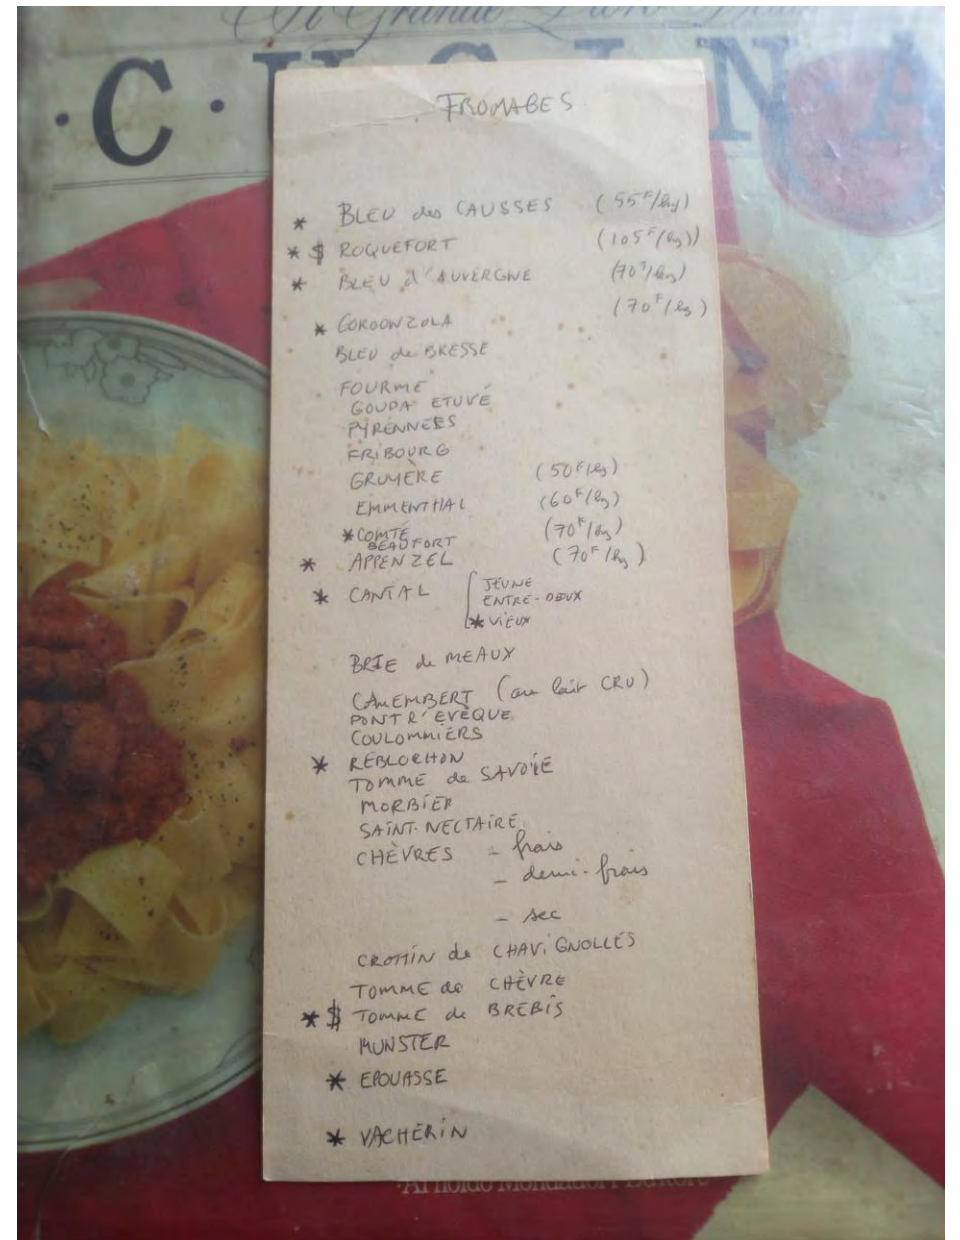 Il Grande Libro Della
·CUCINA·
FROMAGES
* BLEU des CAUSSES (55F/kg)
* $ ROQUEFORT (105F/kg)
* BLEU d'AUVERGNE (70F/kg)
* GORGONZOLA (70F/kg)
BLEU de BRESSE
FOURME
GOUDA ETUVÉ
PYRENNEES
FRIBOURG
GRUYÈRE (50F/kg)
EMMENTHAL (60F/kg)
* COMTÉ (70F/kg)
BEAUFORT
* APPENZEL (70F/kg)
* CANTAL [ JEUNE
ENTRE-DEUX
* VIEUX
BRIE de MEAUX
CAMEMBERT (au lait CRU)
PONT L'EVÈQUE
COULOMMIERS
* REBLOCHON
TOMME de SAVOIE
MORBIER
SAINT-NECTAIRE
CHÈVRES - frais
- demi-frais
- sec
CROTTIN de CHAVIGNOLLES
TOMME de CHÈVRE
* $ TOMME de BREBIS
MUNSTER
* EPOUASSE
* VACHERIN
·Arnoldo Mondadori Editore